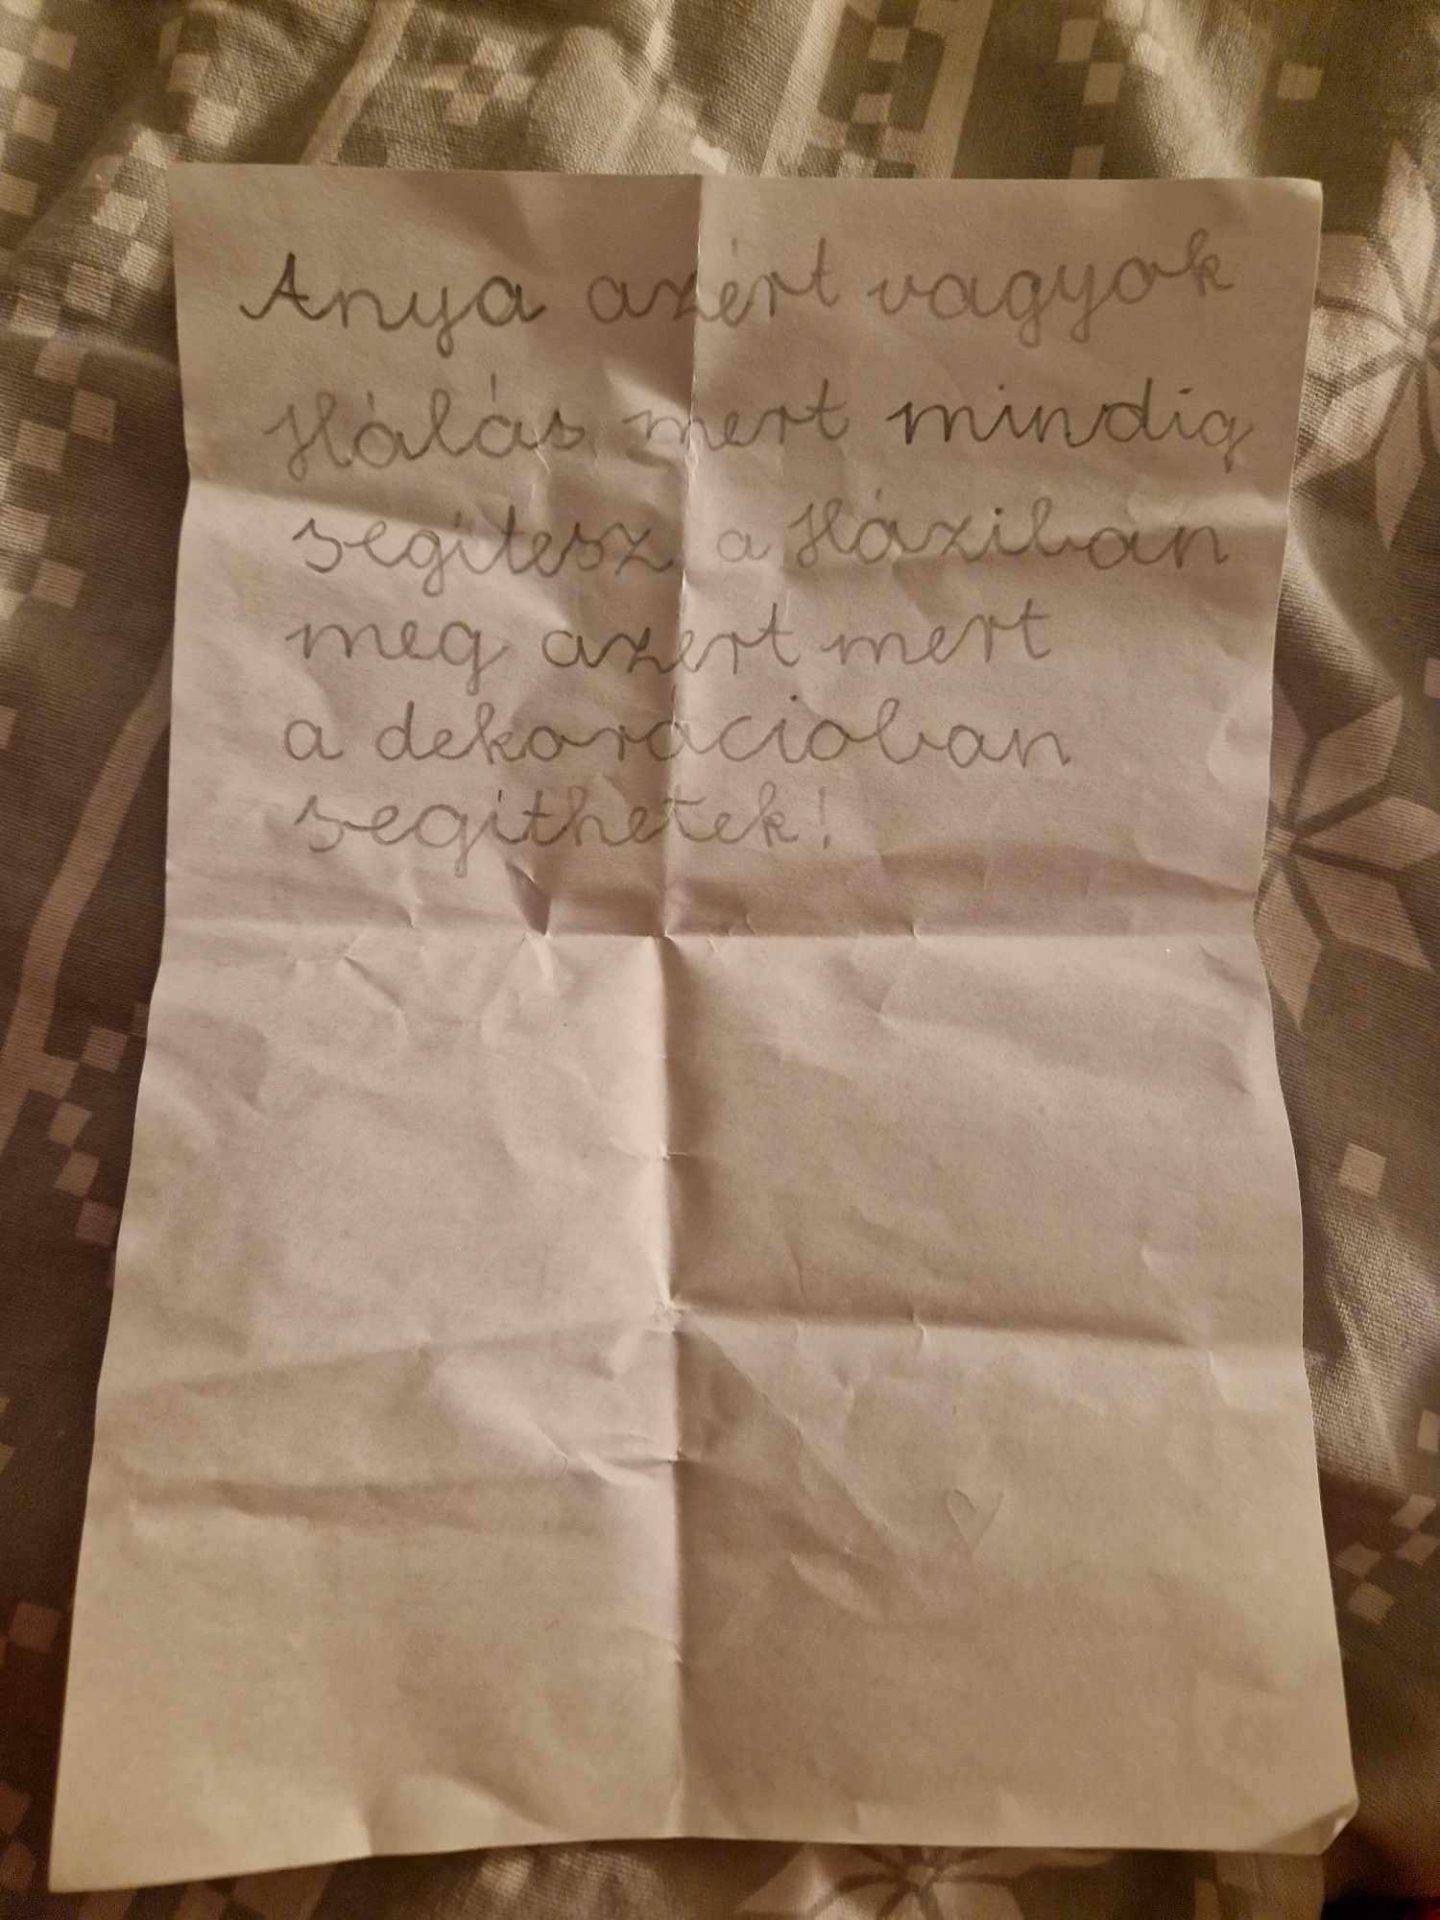 Anya azért vagyok
Hálás mert mindig
segítesz a Háziban
meg azert mert
a dekorácioban
segíthetek!